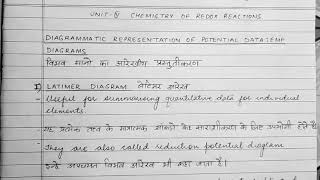 UNIT-IV CHEMISTRY OF REDOX REACTIONS
DIAGRAMMATIC REPRESENTATION OF POTENTIAL DATA:EMF
DIAGRAMS
विभव मानो का आरेखीय प्रस्तुतीकरण
I) LATIMER DIAGRAM लेटिमर आरेख
- Useful for summarising quantitative data for individual
elements.
यह प्रत्येक तत्व के मात्रात्मक आंकड़ो के सारांशीकरण के लिए उपयोगी होते है
- They are also called reduction potential diagram
इन्हे अपचयन विभव आरेख भी कहा जाता है।